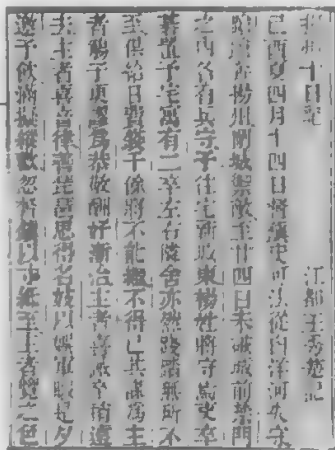 揚州十日記 江都王秀楚記
己酉夏四月十四日督鎮史可法從白洋河失守
踉蹌奔揚州閉城禦敵至廿四日未破城前禁門
之內各有兵守予住宅西城東楊姓將守焉吏卒
碁置予宅寓有二卒左右隣舍亦然踐踏無所不
至供給日費錢千餘將不能繼不得已共謀為主
者觴予更謬為恭敬酬好漸洽主者喜誡卒稍遠
去主者喜音律善琵琶思得名妓以娛軍暇是夕
邀予飲滿擬縱歡忽督鎮以寸紙至主者覽之色